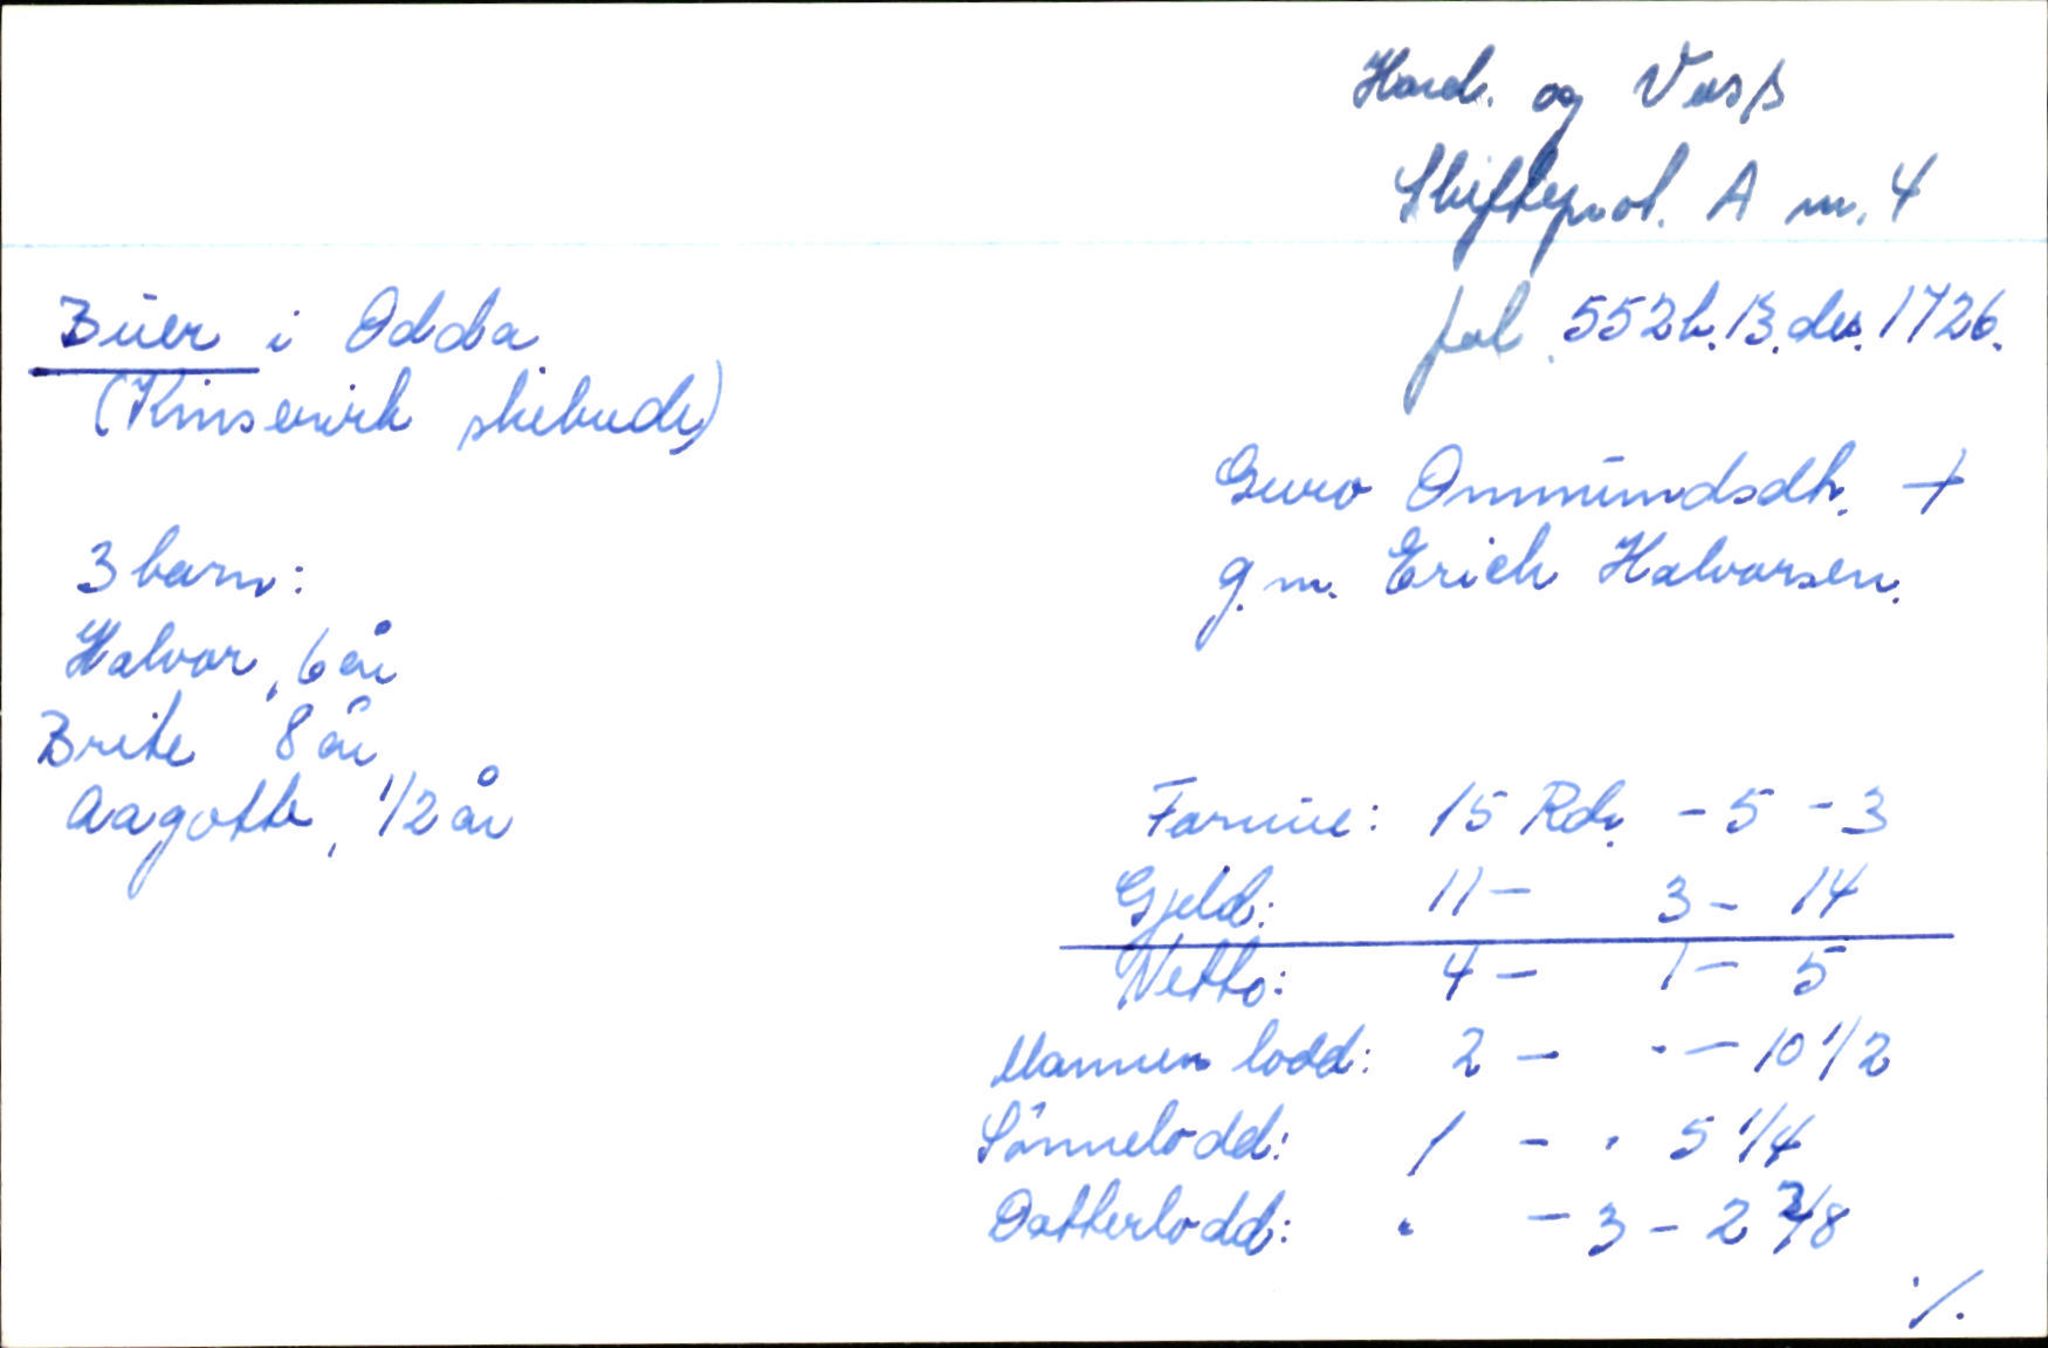 Hard. og Voss
Skifteprot. A nr. 4
fol. 552b. 13. des. 1726.
Büer i Odda
(Kinservik skibrede)
Guro Ommündsdtr. +
g. m. Erich Halvorsen.
3 barn:
Halvor, 6 år
Brite 8 år
Aagotte, 1/2 år
Formüe: 15 Rdr. - 5 - 3
Gjeld: 11 - 3 - 14
Netto: 4 - 1 - 5
Mannen lodd: 2 - · - 10 1/2
Sönnelodd: 1 - · 5 1/4
Datterlodd: · - 3 - 2 3/8
./.